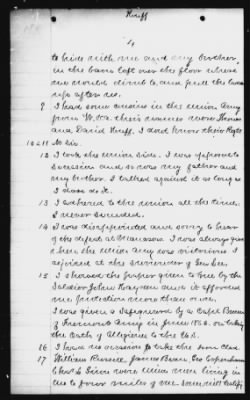 Huff
4
to hide with me and my brother,
in the barn loft over the floor where
we would climb to, and pull the
up after us.
9 I had some cousins in the Union Army
from W. Va. their names were Thomas
and David Huff. I dont know their Regts
10 & 11 No Sir.
12 I took the Union side. I was opposed to
Secession and so was my father and
my brother. I talked against it as long as
I dare do it.
13 I adhered to the Union all the time
I never seceded.
14 I was disappointed and sorry to hear
of the defeat at Manassas. I was always glad
when the Union Army was victorious. I
rejoiced at the surrender of Gen Lee.
15 I showed the paper given to me by the
Soldier John Haynes and it afforded
me protection more than once.
I was given a Safeguard by a Capt
of Fremonts Army in June 1862. on taking
the Oath of Allegiance to the U.S.
16 I had no occasion to take the iron clad
17 William Russell James Bean, Geo
were Union men living in
two to four miles of me